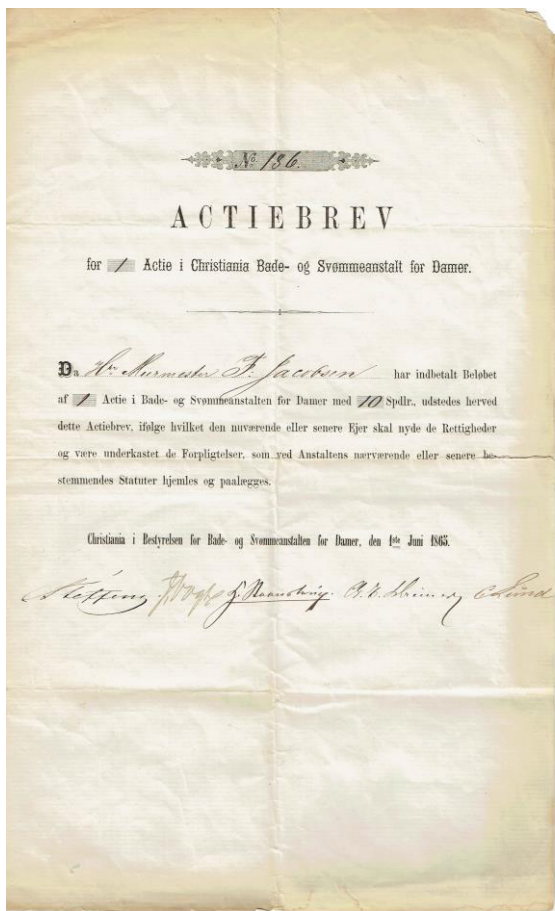 No. 136.
ACTIEBREV
for 1 Actie i Christiania Bade- og Svømmeanstalt for Damer.
Da Hr. Murmester F. Jacobsen har indbetalt Beløbet
af 1 Actie i Bade- og Svømmeanstalten for Damer med 10 Spdlr., udstedes herved
dette Actiebrev, ifølge hvilket den nuværende eller senere Ejer skal nyde de Rettigheder
og være underkastet de Forpligtelser, som ved Anstaltens nærværende eller senere be-
stemmendes Statuter hjemles og paalægges.
Christiania i Bestyrelsen for Bade- og Svømmeanstalten for Damer, den 1ste Juni 1865.
Steffens C Lund